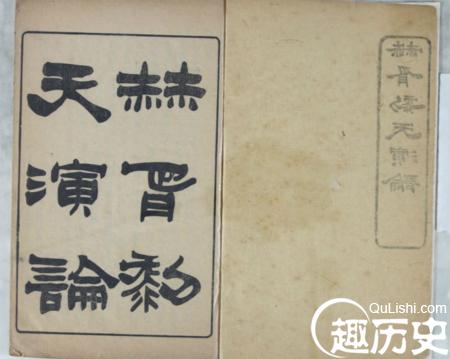 赫胥黎天演論
赫胥黎
天演論
QuLishi.com
趣历史